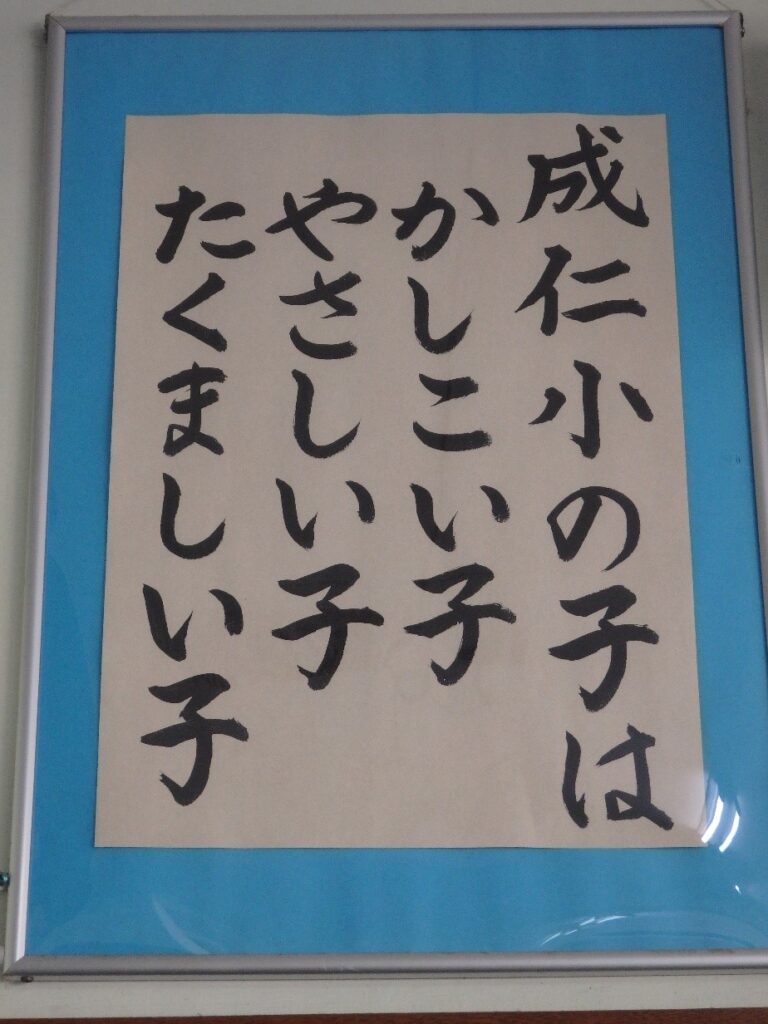 成仁小の子は
かしこい子
やさしい子
たくましい子